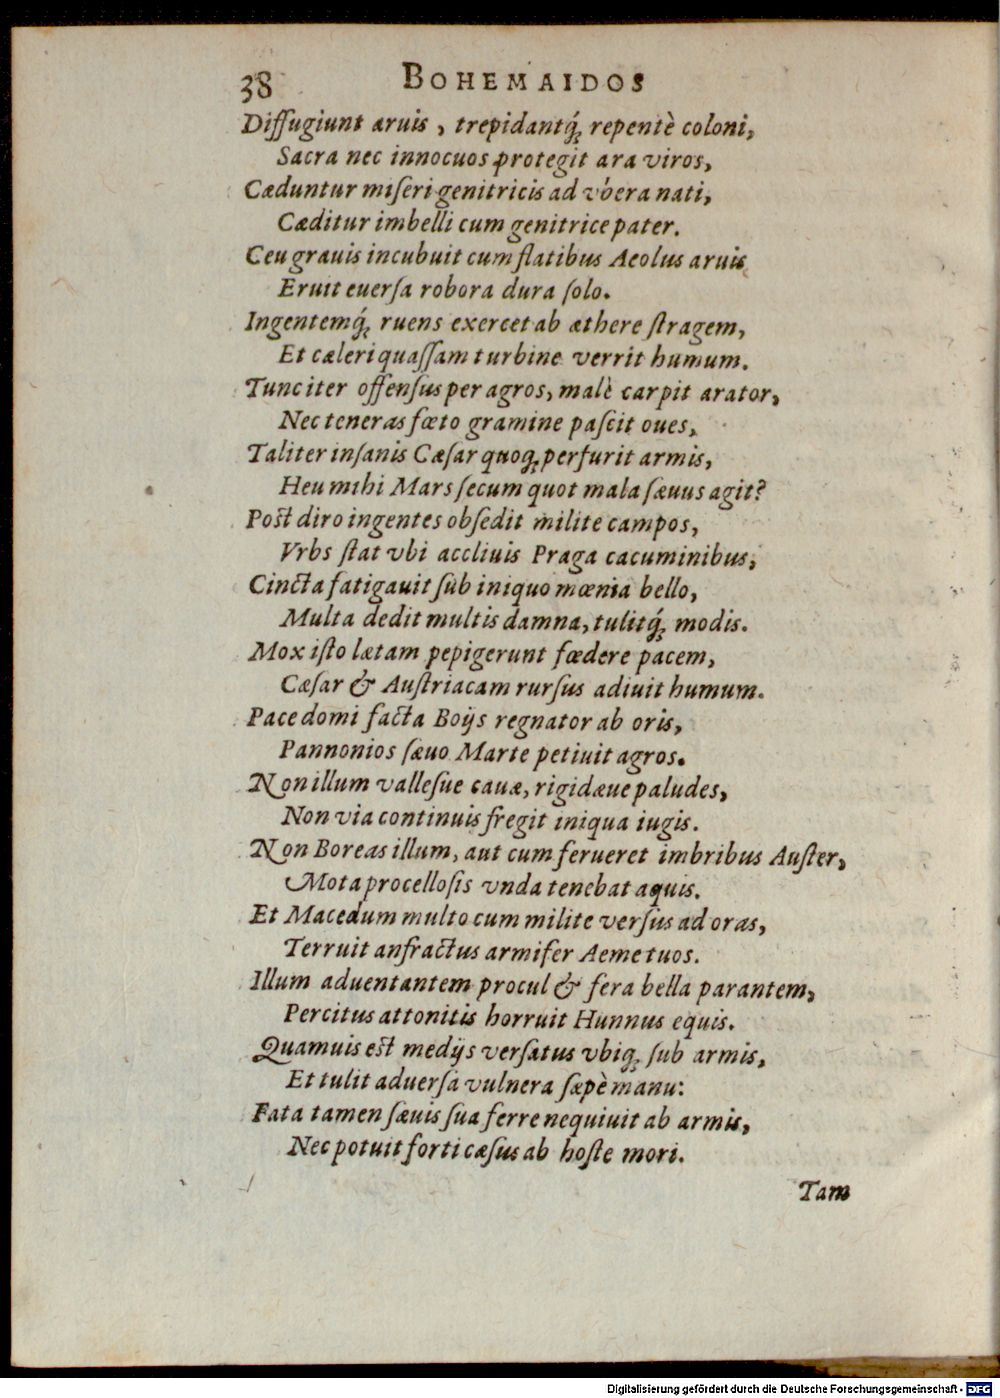 38 BOHEMAIDOS
Diſſugiunt aruis, trepidantq́; repentè coloni,
Sacra nec innocuos protegit ara viros,
Cæduntur miſeri genitricis ad vbera nati,
Cæditur imbelli cum genitrice pater.
Ceu grauis incubuit cum flatibus Aeolus aruis
Eruit euerſa robora dura ſolo.
Ingentemq́; ruens exercet ab æthere ſtragem,
Et cæleri quaſſam turbine verrit humum.
Tunc iter offenſus per agros, malè carpit arator,
Nec teneras fœto gramine paſcit oues,
Taliter inſanis Cæſar quoq; perfurit armis,
Heu mihi Mars ſecum quot mala ſæuus agit?
Poſt diro ingentes obſedit milite campos,
Vrbs ſtat vbi accliuis Praga cacuminibus,
Cincta fatigauit ſub iniquo mœnia bello,
Multa dedit multis damna, tulitq́; modis.
Mox iſto lætam pepigerunt fœdere pacem,
Cæſar & Auſtriacam rurſus adiuit humum.
Pace domi facta Boijs regnator ab oris,
Pannonios ſæuo Marte petiuit agros.
Non illum valleſue cauæ, rigidæue paludes,
Non via continuis fregit iniqua iugis.
Non Boreas illum, aut cum ferueret imbribus Auſter,
Mota procelloſis vnda tenebat aquis.
Et Macedum multo cum milite verſus ad oras,
Terruit anfractus armifer Aeme tuos.
Illum aduentantem procul & fera bella parantem,
Percitus attonitis horruit Hunnus equis.
Quamuis eſt medijs verſatus vbiq; ſub armis,
Et tulit aduerſa vulnera ſæpè manu:
Fata tamen ſæuis ſua ferre nequiuit ab armis,
Nec potuit forti cæſus ab hoſte mori.
Tam
Digitalisierung gefördert durch die Deutsche Forschungsgemeinschaft - DFG